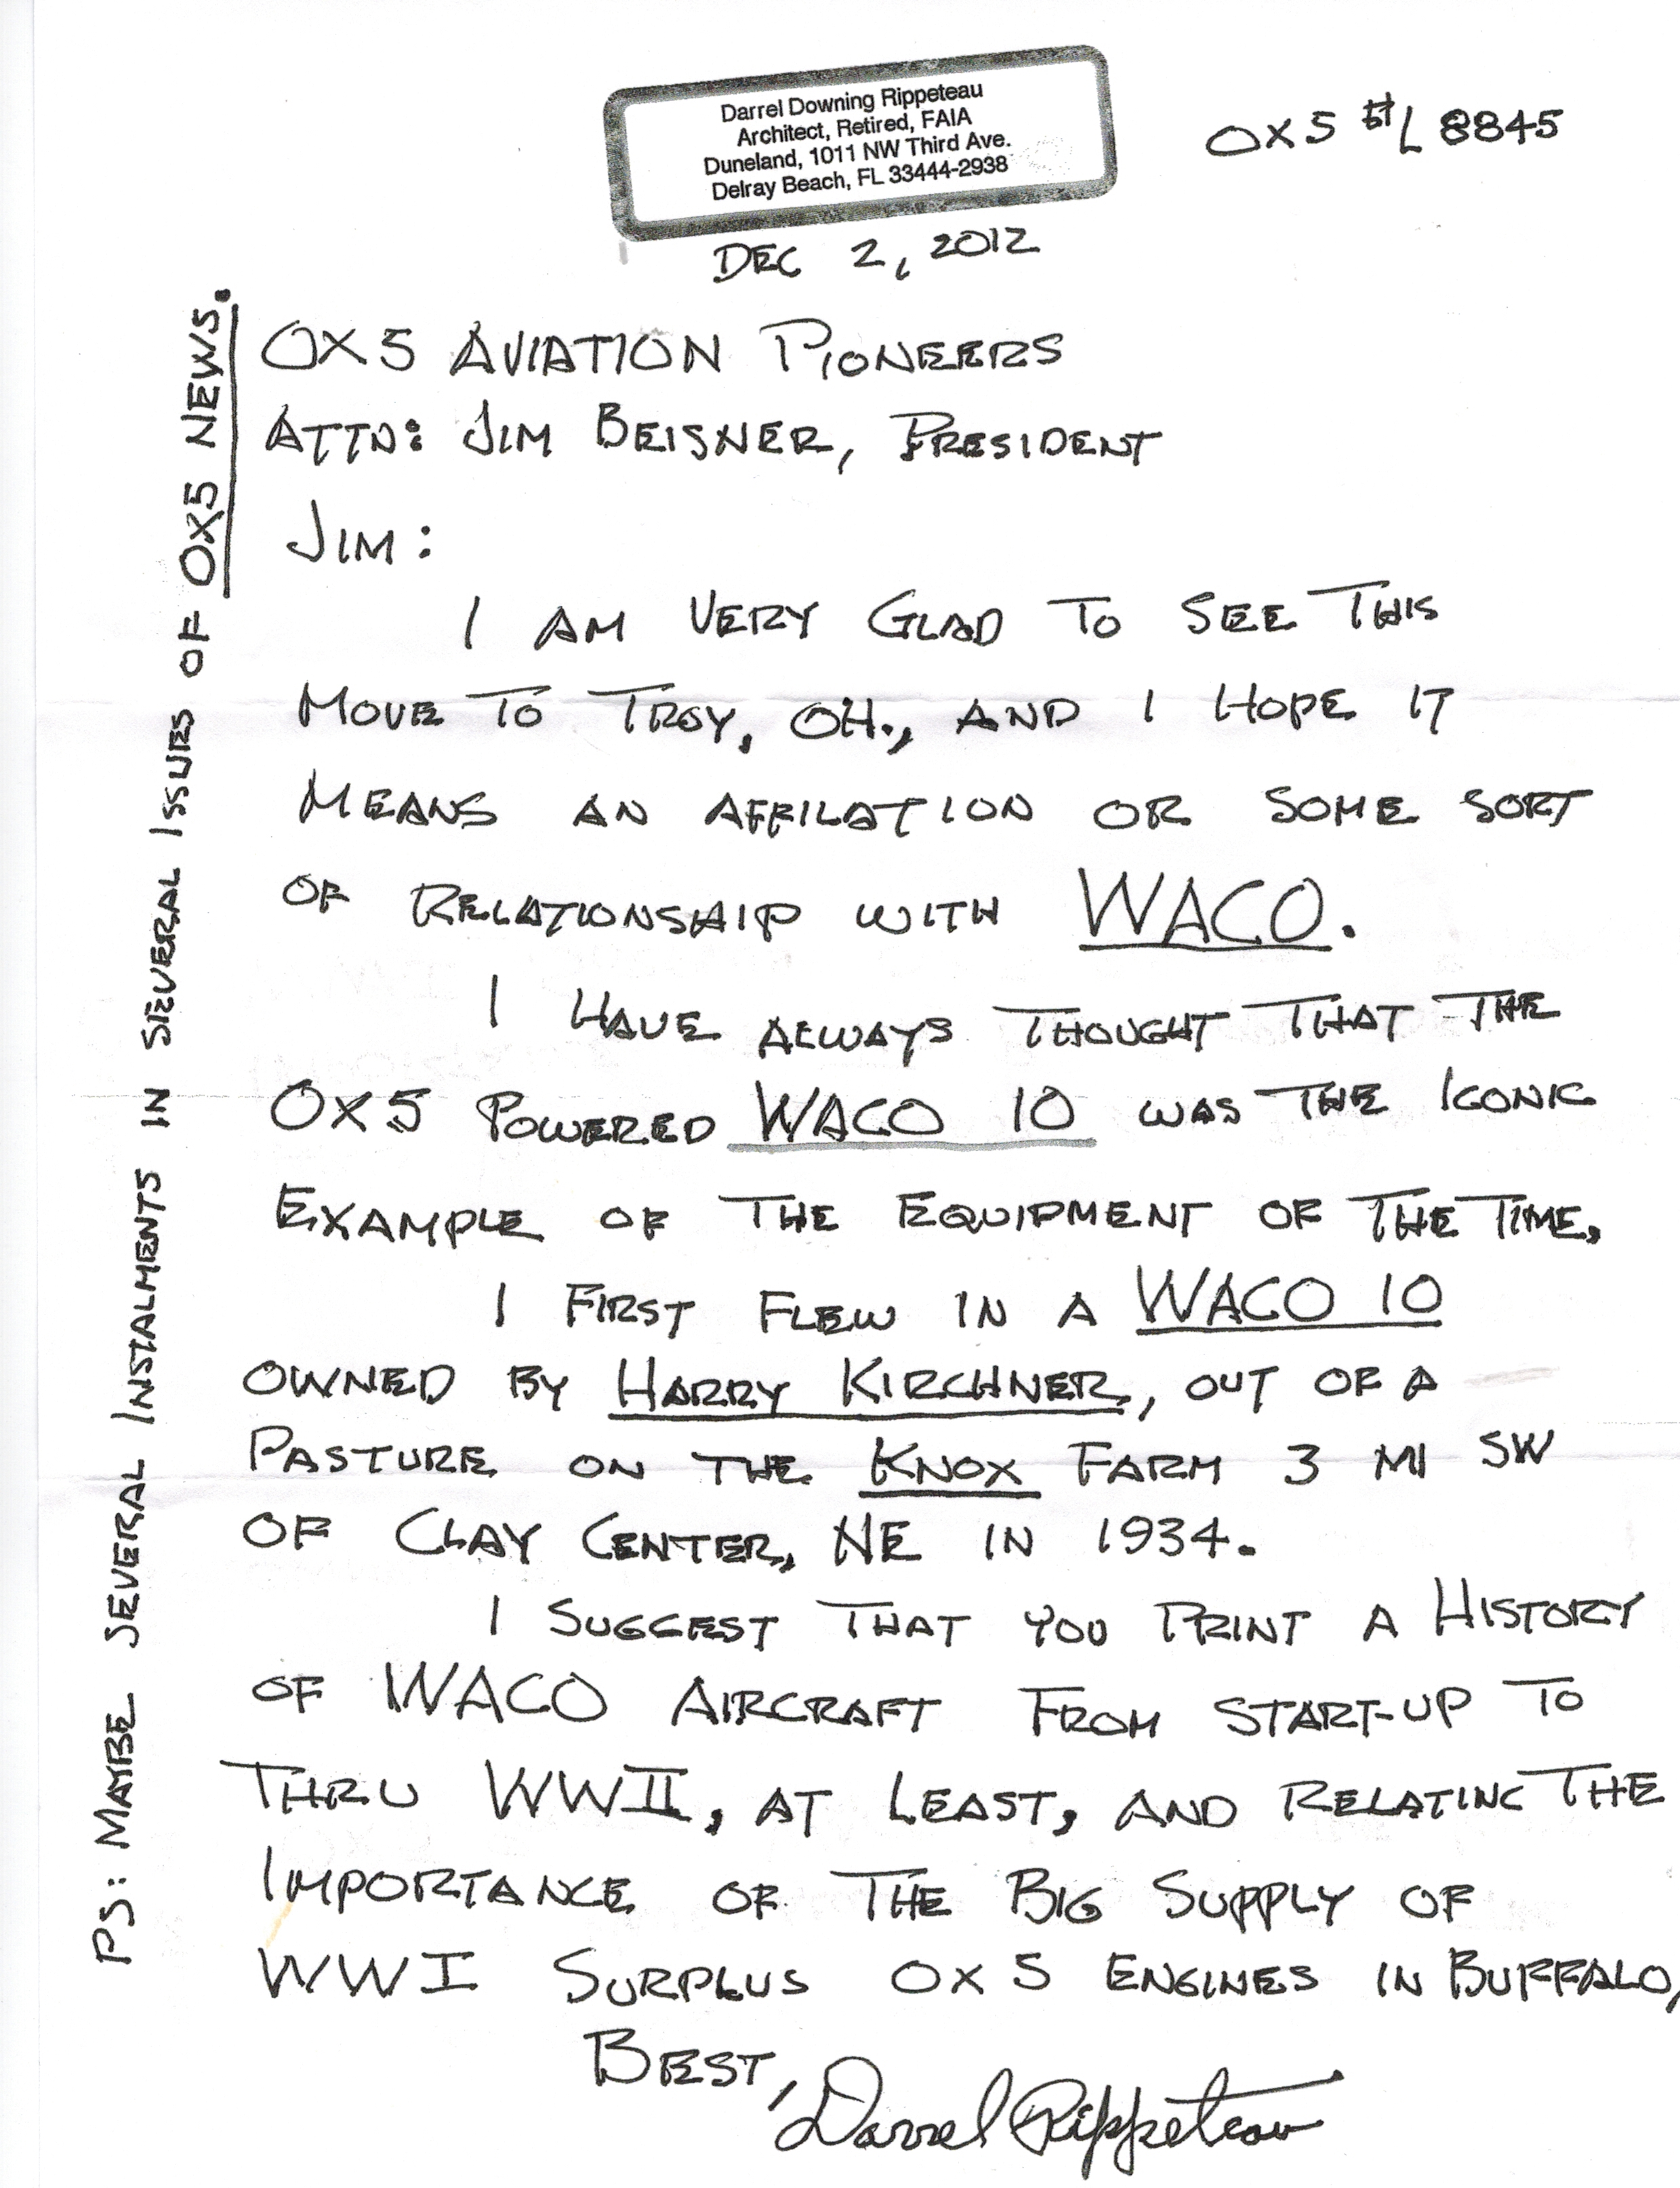 Darrel Downing Rippeteau
Architect, Retired, FAIA
Duneland, 1011 NW Third Ave.
Delray Beach, FL 33444-2938
OX5 #L 8845
DEC 2, 2012
OX5 AVIATION PIONEERS
ATTN: JIM BEISNER, PRESIDENT
JIM:
I AM VERY GLAD TO SEE THIS
MOVE TO TROY, OH., AND I HOPE IT
MEANS AN AFFILATION OR SOME SORT
OF RELATIONSHIP WITH WACO.
I HAVE ALWAYS THOUGHT THAT THE
OX5 POWERED WACO 10 WAS THE ICONIC
EXAMPLE OF THE EQUIPMENT OF THE TIME.
I FIRST FLEW IN A WACO 10
OWNED BY HARRY KIRCHNER, OUT OF A
PASTURE ON THE KNOX FARM 3 MI SW
OF CLAY CENTER, NE IN 1934.
I SUGGEST THAT YOU PRINT A HISTORY
OF WACO AIRCRAFT FROM START-UP TO
THRU WWII, AT LEAST, AND RELATING THE
IMPORTANCE OF THE BIG SUPPLY OF
WWI SURPLUS OX5 ENGINES IN BUFFALO,
BEST,
Darrel Rippeteau
PS: MAYBE SEVERAL INSTALMENTS IN SEVERAL ISSUES OF OX5 NEWS.